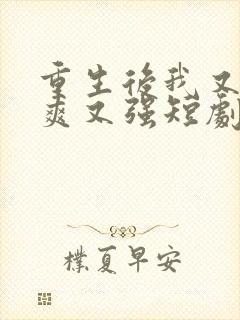 重生後我又
爽又強短劇
樸夏早安